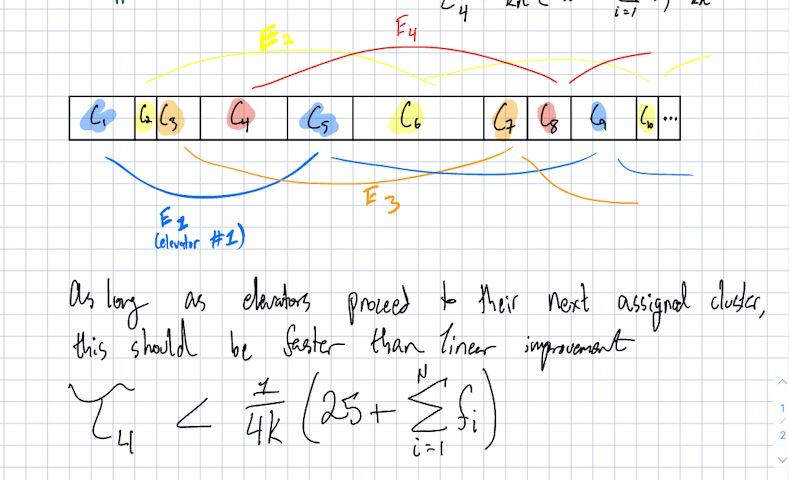 E₂ E₄
C₁ C₂ C₃ C₄ C₅ C₆ C₇ C₈ C₉ C₁₀ ...
E₃
E₁
(elevator #1)
As long as elevators proceed to their next assigned cluster,
this should be faster than linear improvement
τ₄ < 1/4k (25 + Σ_{i=1}^{N} f_i)
1
/
2